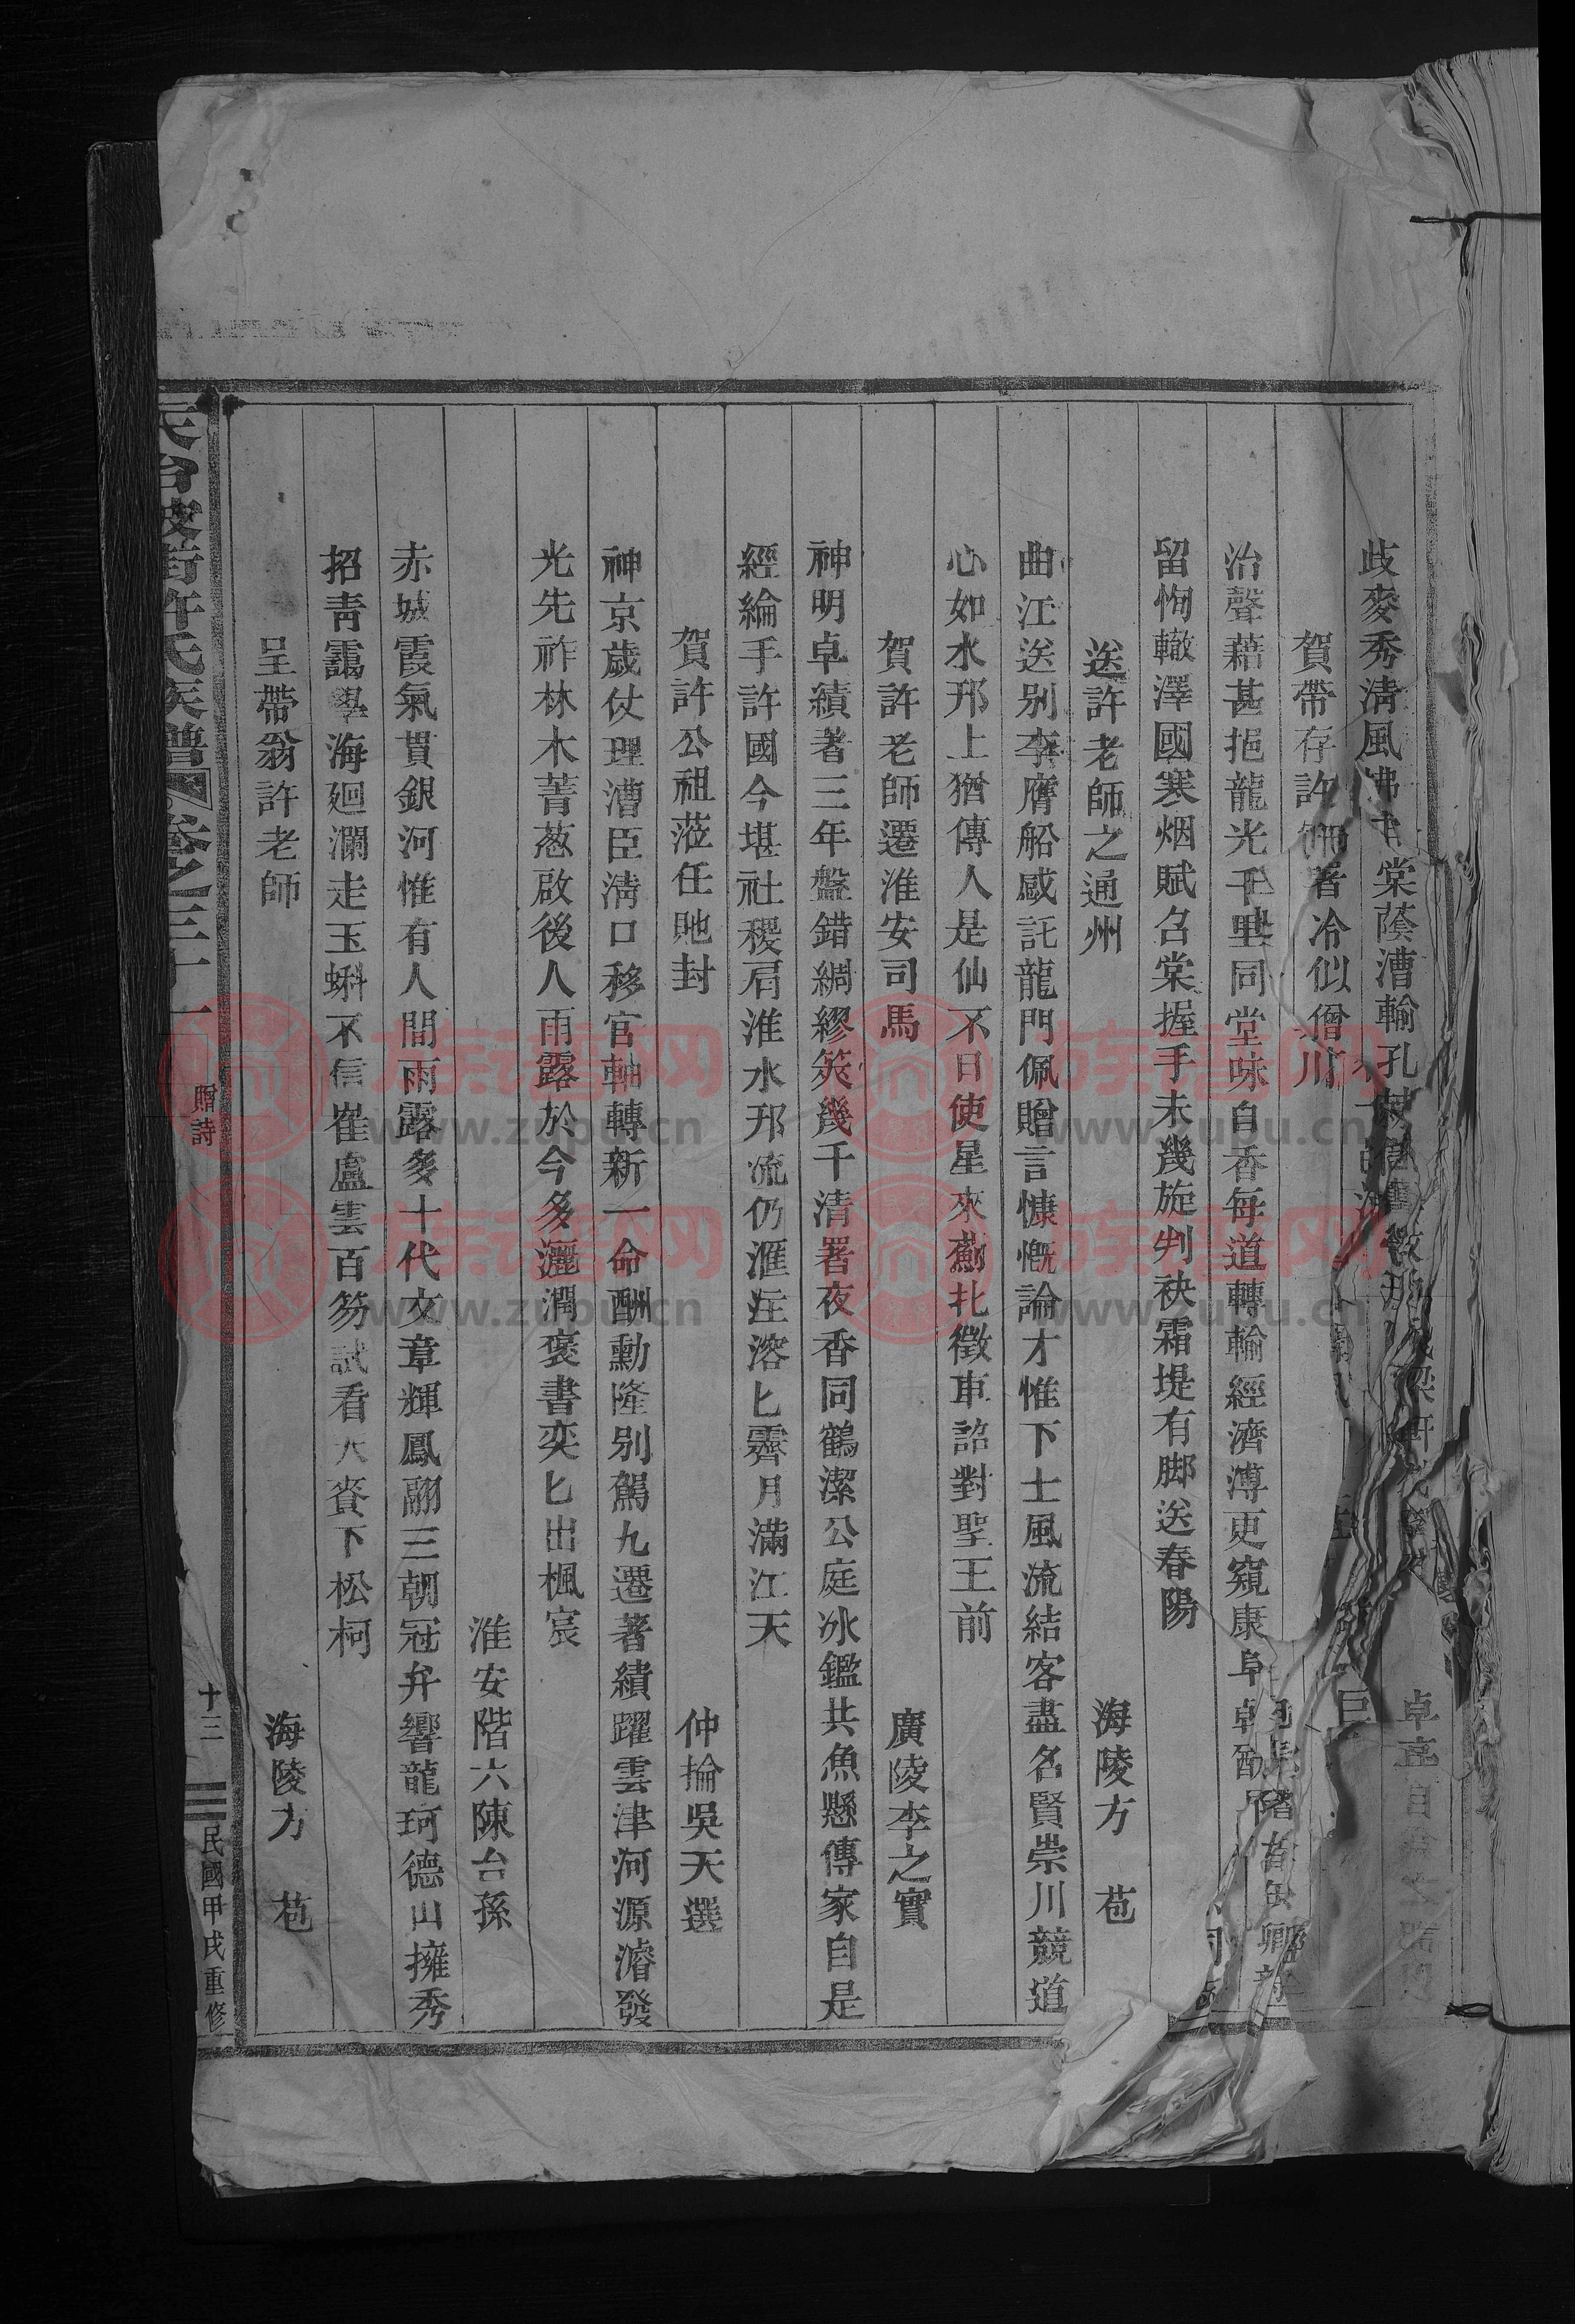 歧麥秀淸風
棠蔭漕輸孔
賀帶存許
署冷似僧
治聲藉甚挹龍光千里同堂味自香每道轉輸經濟溥更窺康阜
留恂轍澤國寒烟賦召棠握手未幾旋判袂霜堤有脚送春陽
送許老師之通州
海陵方苞
曲江送別李膺船感託龍門佩贈言慷慨論才惟下士風流結客盡名賢崇川競道
心如水邗上猶傳人是仙不日使星來薊北徵車詔對聖王前
賀許老師遷淮安司馬
廣陵李之實
神明卓績著三年盤錯綢繆筴幾千清署夜香同鶴潔公庭冰鑑共魚懸傳家自是
經綸手許國今堪社稷肩淮水邗流仍滙注溶匕霽月滿江天
賀許公祖蒞任貤封
仲掄吳天選
神京歲仗理漕臣淸口移官軸轉新一命酬勳隆別駕九遷著績躍雲津河源濬發
光先祚林木菁葱啟後人雨露於今多灑潤褒書奕匕出楓宸
淮安階六陳台孫
赤城霞氣貫銀河惟有人間雨露多十代文章輝鳳翮三朝冠弁響龍珂德山擁秀
招青靄學海廻瀾走玉蝌不信崔盧雲百笏試看大賚下松柯
呈帶翁許老師
海陵方苞
天台坡街許氏族譜 卷之三十一
贈詩
十三
民國甲戌重修
族譜网
www.zupu.cn
族譜网
www.zupu.cn
族譜网
www.zupu.cn
族譜网
www.zupu.cn